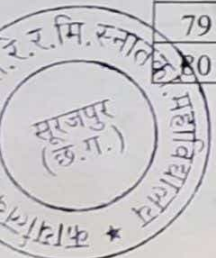 79
80
रे.र.मि.स्नातको. महाविद्यालय
सूरजपुर
(छ.ग.)